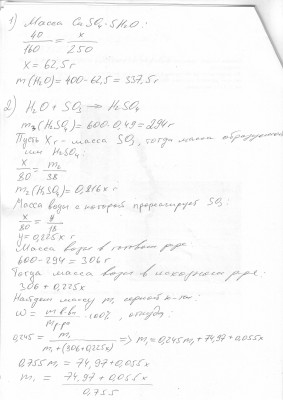 1) Масса CuSO4·5H2O:
40/160 = x/250
x = 62,5 г
m(H2O) = 400-62,5 = 337,5 г
2) H2O + SO3 → H2SO4
m3(H2SO4) = 600·0,49 = 294 г
Пусть x г - масса SO3, тогда масса образующейся
ею H2SO4:
x/80 = m2/98
m2(H2SO4) = 0,816x г
Масса воды с которой прореагирует SO3:
x/80 = y/18
y = 0,225x г
Масса воды в готовом р-ре
600-294 = 306 г
Тогда масса воды в исходном р-ре:
306 + 0,225x
Найдем массу m1 серной к-ты:
ω = mв-ва/mр-ра · 100%, откуда:
0,245 = m1/(m1+(306+0,225x)) => m1 = 0,245m1 + 74,97 + 0,055x
0,755m1 = 74,97 + 0,055x
m1 = (74,97 + 0,055x)/0,755